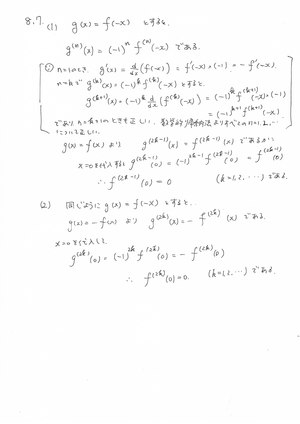 8.7. (1) g(x) = f(-x) とすると、
g^{(n)}(x) = (-1)^n f^{(n)}(-x) である。
n=1のとき、g'(x) = \frac{d}{dx}(f(-x)) = f'(-x)・(-1) = -f'(-x).
n=kで g^{(k)}(x) = (-1)^k f^{(k)}(-x) とすると
g^{(k+1)}(x) = (-1)^k \frac{d}{dx}(f^{(k)}(-x)) = (-1)^k f^{(k+1)}(-x)・(-1)
= (-1)^{k+1} f^{(k+1)}(-x)
であり n=k+1のときも正しい. 数学的帰納法よりすべてのn=1,2,…
について正しい.
g(x) = f(x) より g^{(2k-1)}(x) = f^{(2k-1)}(x) であるから
x=0を代入すると g^{(2k-1)}(0) = (-1)^{2k-1} f^{(2k-1)}(0) = f^{(2k-1)}(0)
∴ f^{(2k-1)}(0) = 0 (k=1,2,…) である.
(2) 同じように g(x) = f(-x) とすると、
g(x) = -f(x) より g^{(2k)}(x) = -f^{(2k)}(x) である.
x=0を代入し
g^{(2k)}(0) = (-1)^{2k} f^{(2k)}(0) = -f^{(2k)}(0)
∴ f^{(2k)}(0) = 0. (k=1,2,…) である.